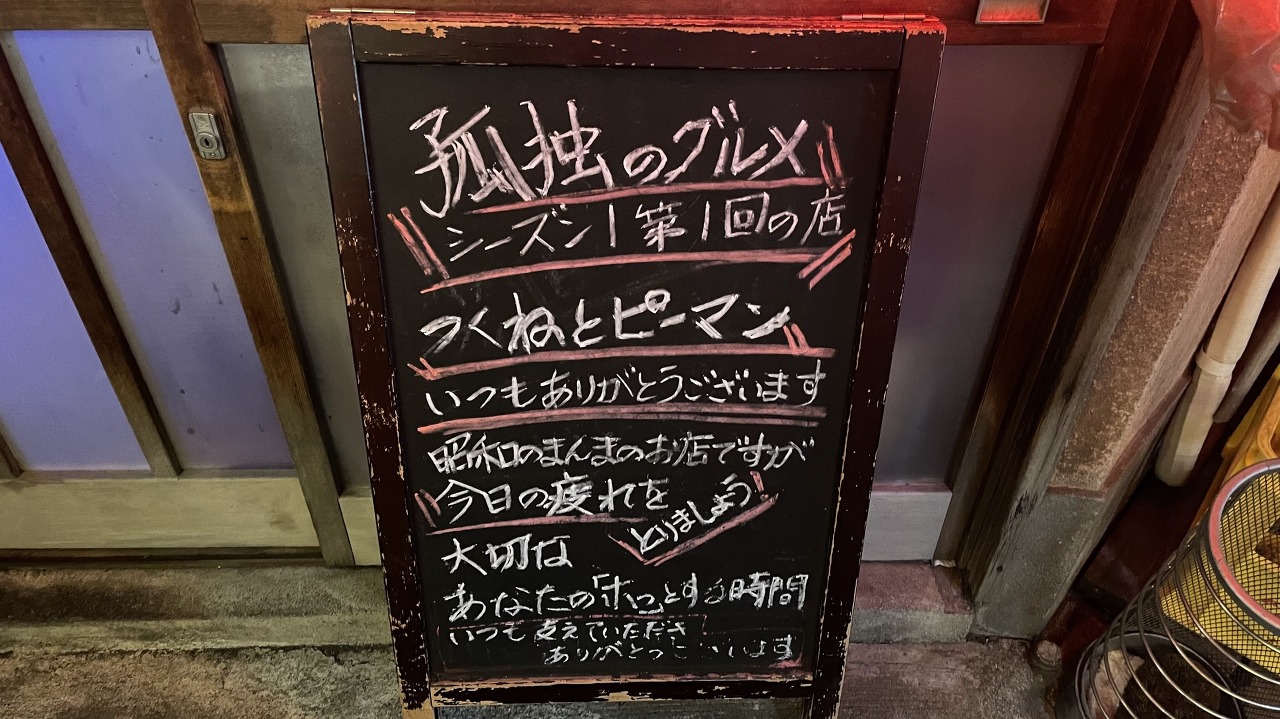 孤独のグルメ
シーズン1第1回の店
つくねとピーマン
いつもありがとうございます
昭和のまんまのお店ですが
今日の疲れを
とりましょう
大切な
あなたの「ホッとする時間
いつも支えていただき
ありがとうございます